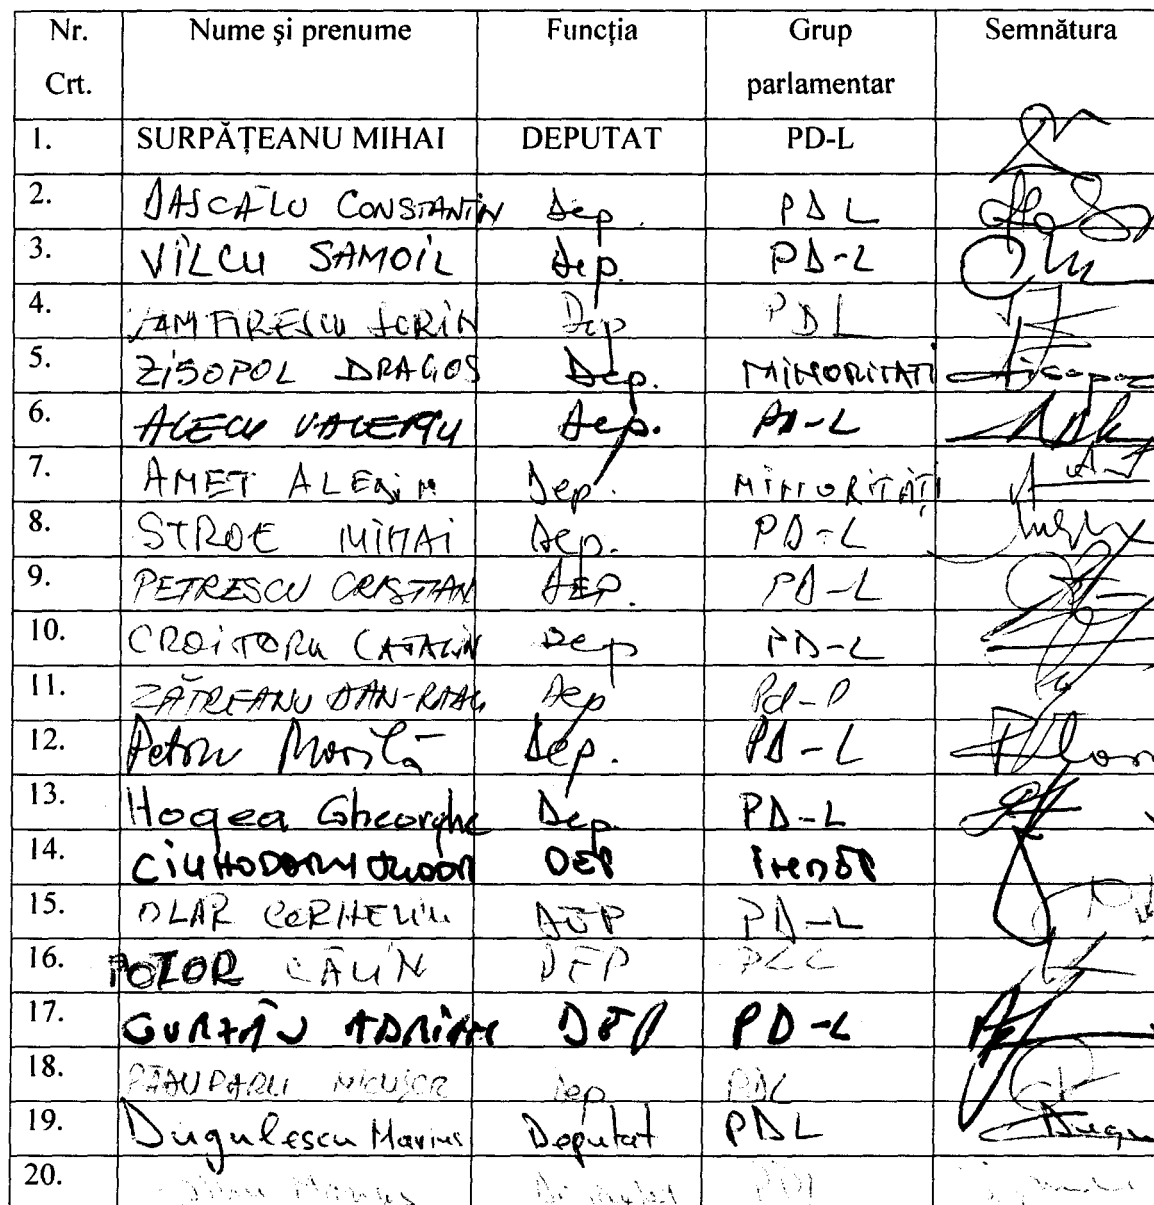 Nr. Crt. Nume și prenume Funcția Grup parlamentar Semnătura
1. SURPĂȚEANU MIHAI DEPUTAT PD-L
2. DASCĂLU CONSTANTIN Dep. PDL
3. VÎLCU SAMOIL Dep. PD-L
4. ZAMFIRESCU SORIN Dep PDL
5. ZISOPOL DRAGOS Dep. MINORITATI
6. ALECU VALERIU Dep. PD-L
7. AMET ALEDIN Dep. MINORITĂȚI
8. STROE MIHAI Dep. PD-L
9. PETRESCU CRISTIAN DEP. PD-L
10. CROITORU CATALIN Dep PD-L
11. ZĂTREANU DAN-RADU Dep Pd-l
12. Petru Movilă Dep. PD-L
13. Hogea Gheorghe Dep. PD-L
14. CIUHODARU TUDOR DEP INDEP
15. OLAR CORNELIU DEP PD-L
16. POTOR CĂLIN DEP
17. GURZĂU ADRIAN DEP PD-L
18. Dep PDL
19. Dugulescu Marius Deputat PDL
20.